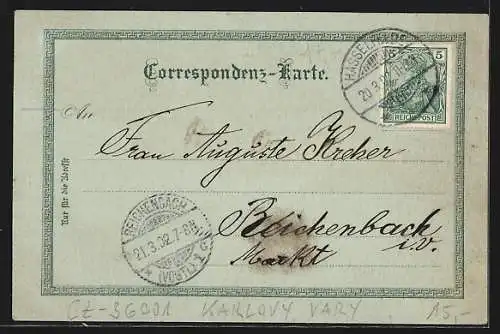 Correspondenz-Karte.
An
Frau Auguste Kreher
Reichenbach
i.v.
Markt
Nur für die Adresse
5
REICHSPOST
20.3.02
REICHENBACH
21.3.02.7-8N.
(VOGTL) 1
CZ-36001 KARLOVY VARY 15,-